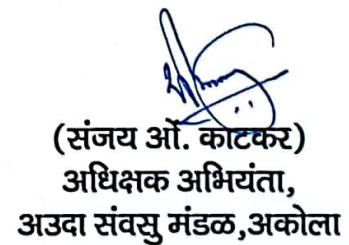 (संजय ओ. काटकर)
अधिक्षक अभियंता,
अउदा संवसु मंडळ,अकोला